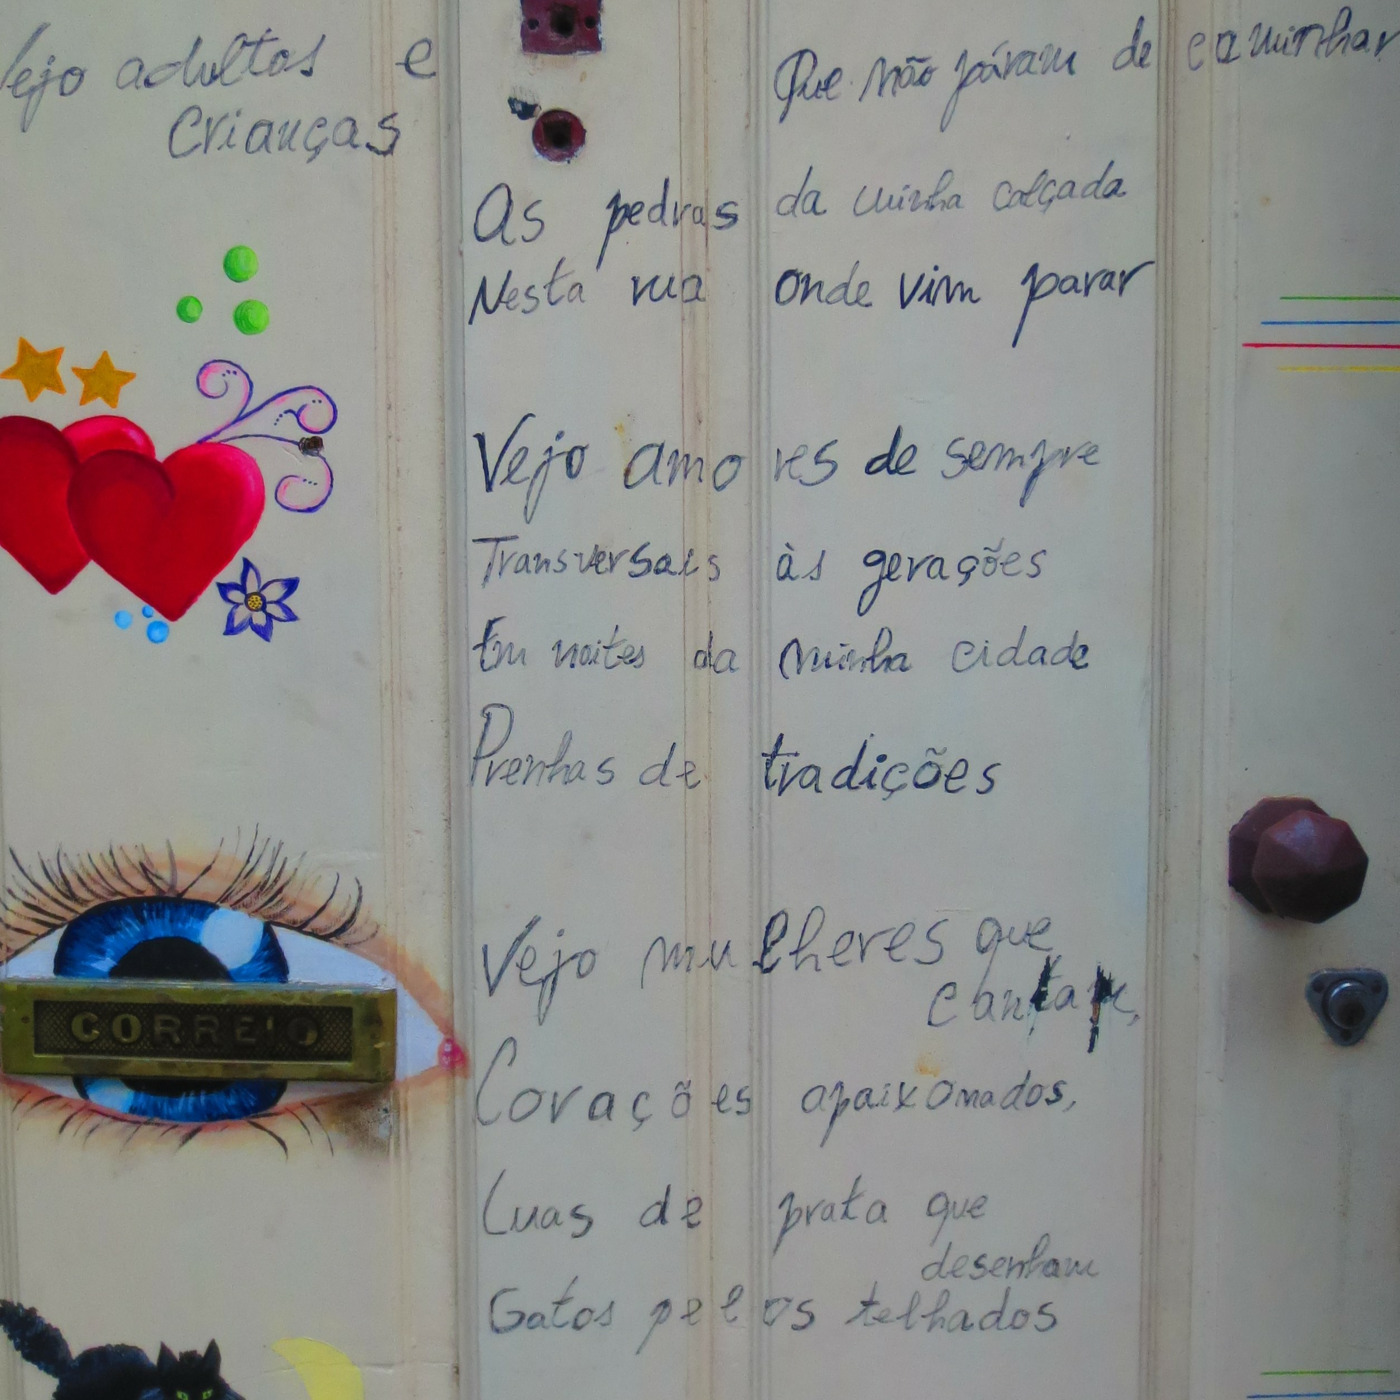 Vejo adultos e crianças
Que não páram de caminhar
As pedras da minha calçada
Nesta rua onde vim parar
Vejo amores de sempre
Transversais às gerações
Em noites da minha cidade
Prenhas de tradições
Vejo mulheres que
cantam,
Corações apaixonados,
Luas de prata que
desenham
Gatos pelos telhados
CORREIO